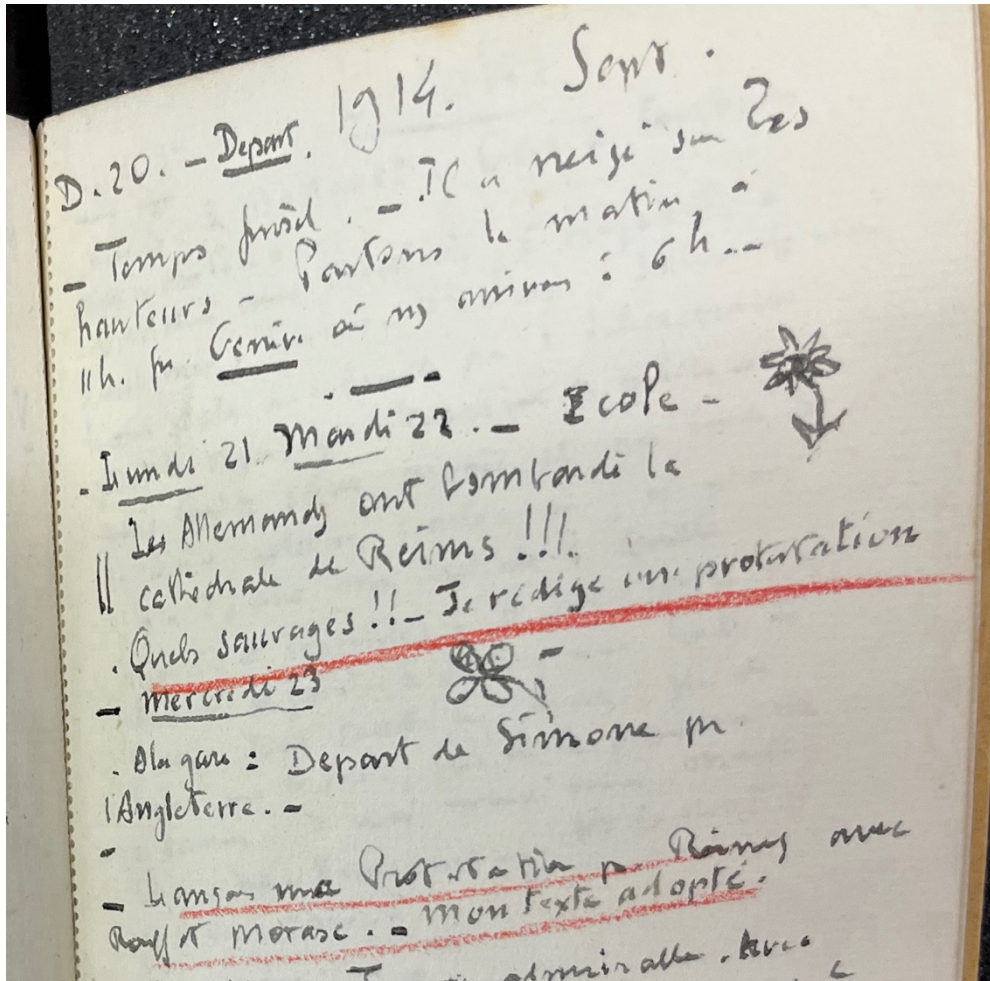 1914. Sept.
D. 20. – Depart.
– Temps froid. – Il a neigé sur les
hauteurs – Partons le matin à
11h. pr. Genève où ns arrivons à 6h. –
– Lundi 21. Mardi 22. – Ecole –
Les Allemands ont bombardé la
cathédrale de Reims !!!.
. Quels sauvages !! – Je rédige une protestation
– Mercredi 23
. A la gare : Depart de Simone pr.
l'Angleterre. –
–
– Lançons ma Protestation pr. Reims avec
et Morax. – Mon texte adopté.
admirable. Avec